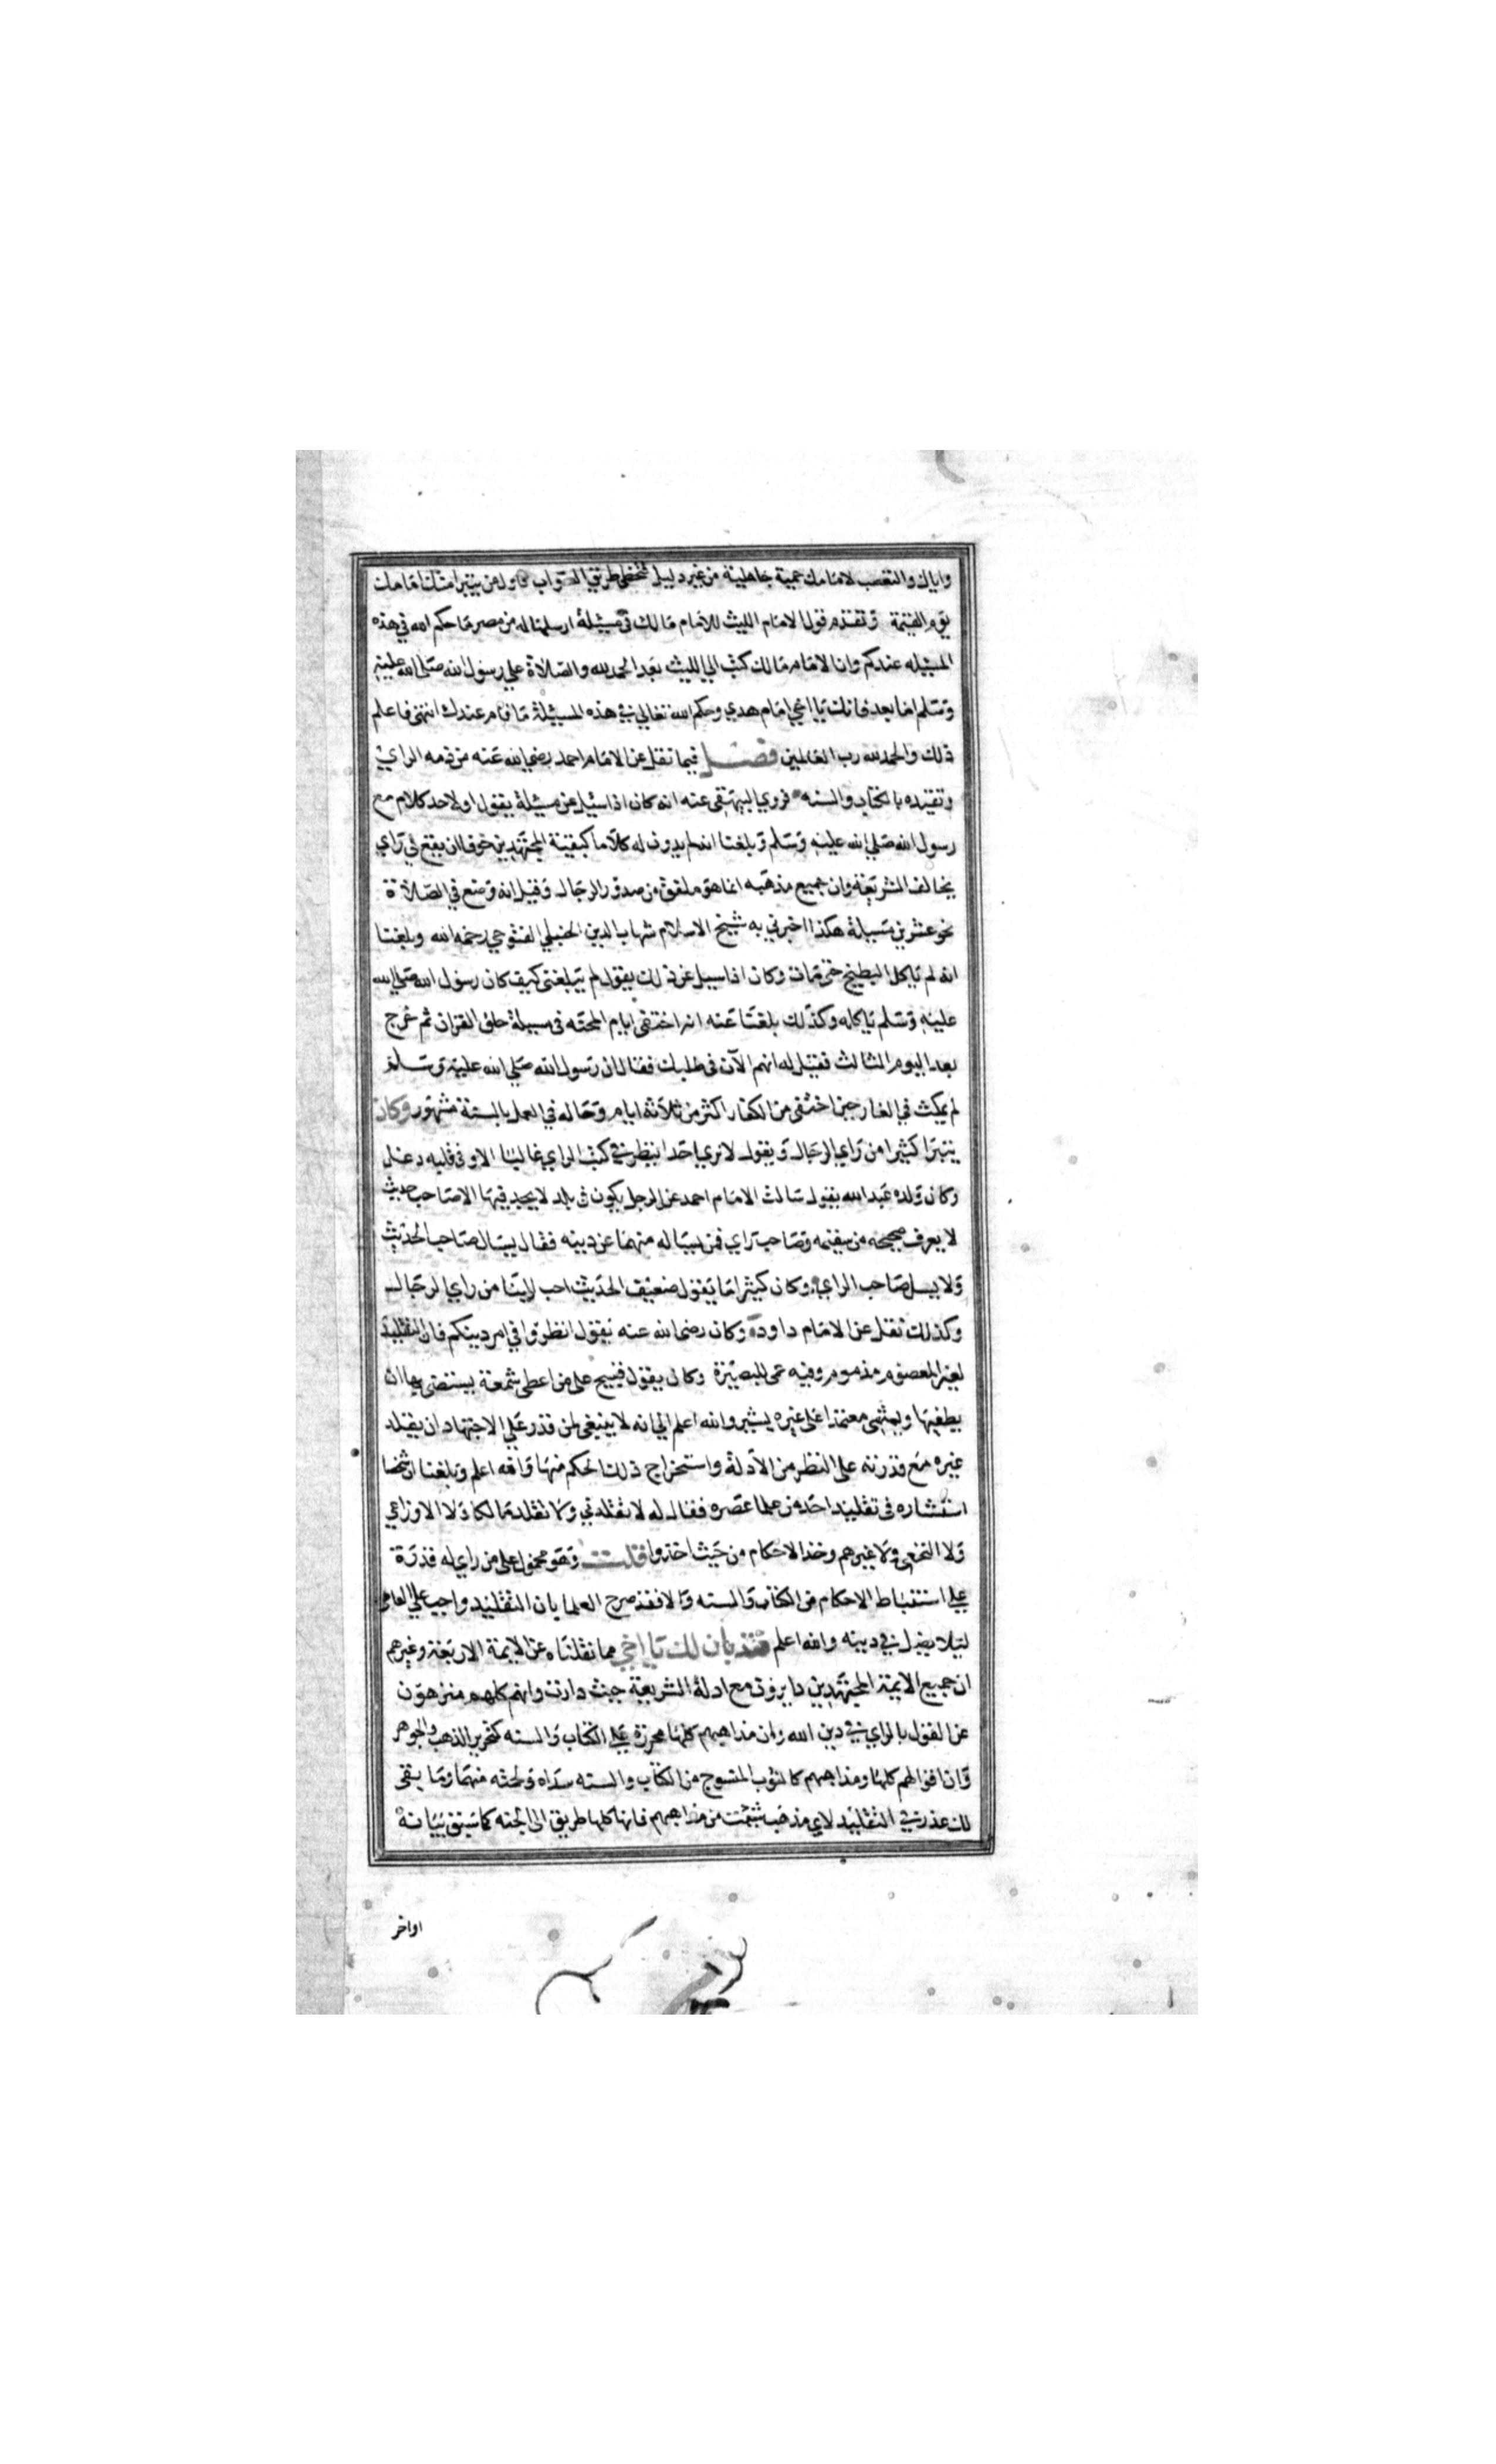 واياك والتعصب لامامك حمية جاهلية من غير دليل فتخطى طريق الصواب فاول من يتبرا منك امامك
يوم القيمة وتقدم قول الامام الليث للامام مالك في مسيلة ارسلها له من مصر ما حكم الله في هذه
المسيله عندكم وان الامام مالك كتب الي الليث بعد الحمد لله والصلاة علي رسول الله صلي الله عليه
وسلم اما بعد فانك يا اخي امام هدي وحكم الله تعالي في هذه المسيلة ما قام عندك انتهى فاعلم
ذلك والحمد لله رب العالمين فصل فيما نقل عن الامام احمد رضي الله عنه من ذمه الراي
وتقيده بالكتاب والسنه فروي البيهقي عنه انه كان اذا سئل عن مسيلة يقول اولاحد كلام مع
رسول الله صلي الله عليه وسلم وبلغنا انه لم يدون له كلاما كبقية المجتهدين خوفا ان يقع في راي
يخالف الشريعة وان جميع مذهبه انما هو ملفق من صدور الرجال وقيل انه وضع في الصلاة
نحو عشرين مسيلة هكذا اخبرني به شيخ الاسلام شهاب الدين الحنبلي الفتوحي رحمه الله وبلغنا
انه لم ياكل البطيخ حتى مات وكان اذا سيل عن ذلك يقول لم يبلغني كيف كان رسول الله صلي الله
عليه وسلم ياكله وكذلك بلغنا عنه انه اختفى ايام المحنه في مسيلة خلق القران ثم خرج
بعد اليوم الثالث فقيل له انهم الآن في طلبك فقال ان رسول الله صلي الله عليه وسلم
لم يمكث في الغار حين اختفى من الكفار اكثر من ثلاثة ايام وحاله في العمل بالسنة مشهور وكان
يتبرا كثيرا من راي الرجال ويقول لا نري احدا ينظر في كتب الراي غالبا الا وفي قلبه دغل
وكان ولده عبد الله يقول سالت الامام احمد عن الرجل يكون في بلد لا يجد فيها الا صاحب حديث
لا يعرف صحيحه من سقيمه وصاحب راي فمن يسال منهما عن دينه فقال يسال صاحب الحديث
ولا يسل صاحب الراي وكان كثيرا ما يقول ضعيف الحديث احب الينا من راي الرجال
وكذلك نقل عن الامام داود وكان رضي الله عنه يقول انظروا في امر دينكم فان التقليد
لغير المعصوم مذموم وفيه عمى للبصيرة وكان يقول قبيح على من اعطى شمعة يستضي بها ان
يطفيها ويمشي معتمدا على غيره يشير والله اعلم الي انه لا ينبغي لمن قدر علي الاجتهاد ان يقلد
غيره مع قدرته على النظر من الأدلة واستخراج ذلك الحكم منها والله اعلم وبلغنا ان شخصا
استشاره في تقليد احد من علما عصره فقال له لا تقلدني ولا تقلد مالكا ولا الاوزاعي
ولا النخعي ولا غيرهم وخذ الاحكام من حيث اخذوا قلت وهو محمول على من راي له قدرة
علي استنباط الاحكام من الكتاب والسنه والا فقد صرح العلما بان التقليد واجب علي العامي
ليلا يضل في دينه والله اعلم فقد بان لك يا اخي مما نقلناه عن الايمة الاربعة وغيرهم
ان جميع الايمة المجتهدين دايرون مع ادلة الشريعة حيث دارت وانهم كلهم منزهون
عن القول بالراي في دين الله وان مذاهبهم كلها محررة علي الكتاب والسنه كتحرير الذهب والجوهر
وان اقوالهم كلها ومذاهبهم كالثوب المنسوج من الكتاب والسنه سداه ولحمته منهما وما بقي
لك عذر في التقليد لاي مذهب شئت من مذاهبهم فانها كلها طريق الي الجنه كما سبق بيانه
اواخر